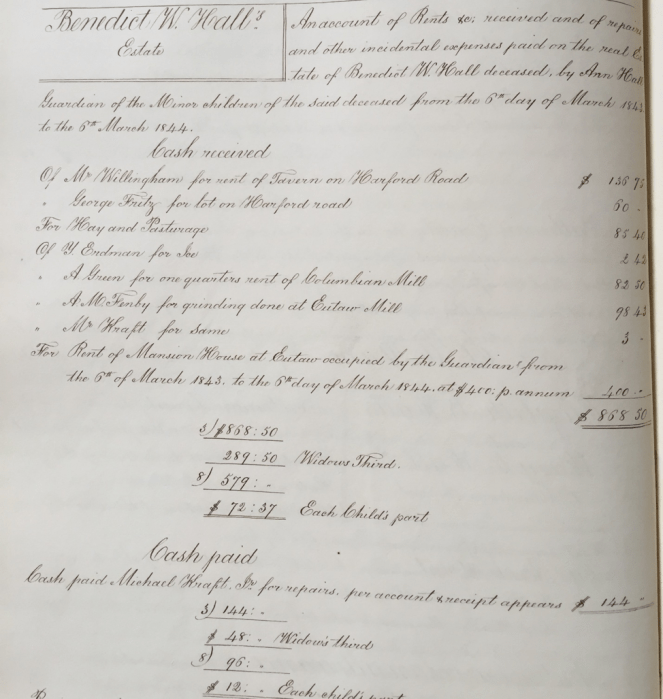 Benedict W. Hall's
Estate
An account of Rints &c; received and of repairs
and other incidental expenses paid on the real Es
tate of Benedict W. Hall deceased, by Ann Hall
Guardian of the Minor children of the said deceased from the 6th day of March 1843
to the 6th March 1844.
Cash received
Of Mr Willingham for rent of Tavern on Harford Road $ 136 75
" George Fritz for lot on Harford road 60 -
For Hay and Pasturage 85 40
Of Y. Erdman for Ice 2 43
" A Green for one quarters rent of Columbian Mill 82 50
" A. M. Fenby for grinding done at Eutaw Mill 98 43
" Mr Kraft for same 3 -
For Rent of Mansion House at Eutaw occupied by the Guardian from
the 6th of March 1843. to the 6th day of March 1844. at $400: p. annum 400 -
$ 868 50
3) $868:50
289:50 Widows Third.
8) 579: -
$ 72:37 Each Child's part
Cash paid
Cash paid Michael Kraft. Jr for repairs. per account & receipt appears $ 144 -
3) 144: -
$ 48: - Widow's third
8) 96: -
$ 12: - Each child's part